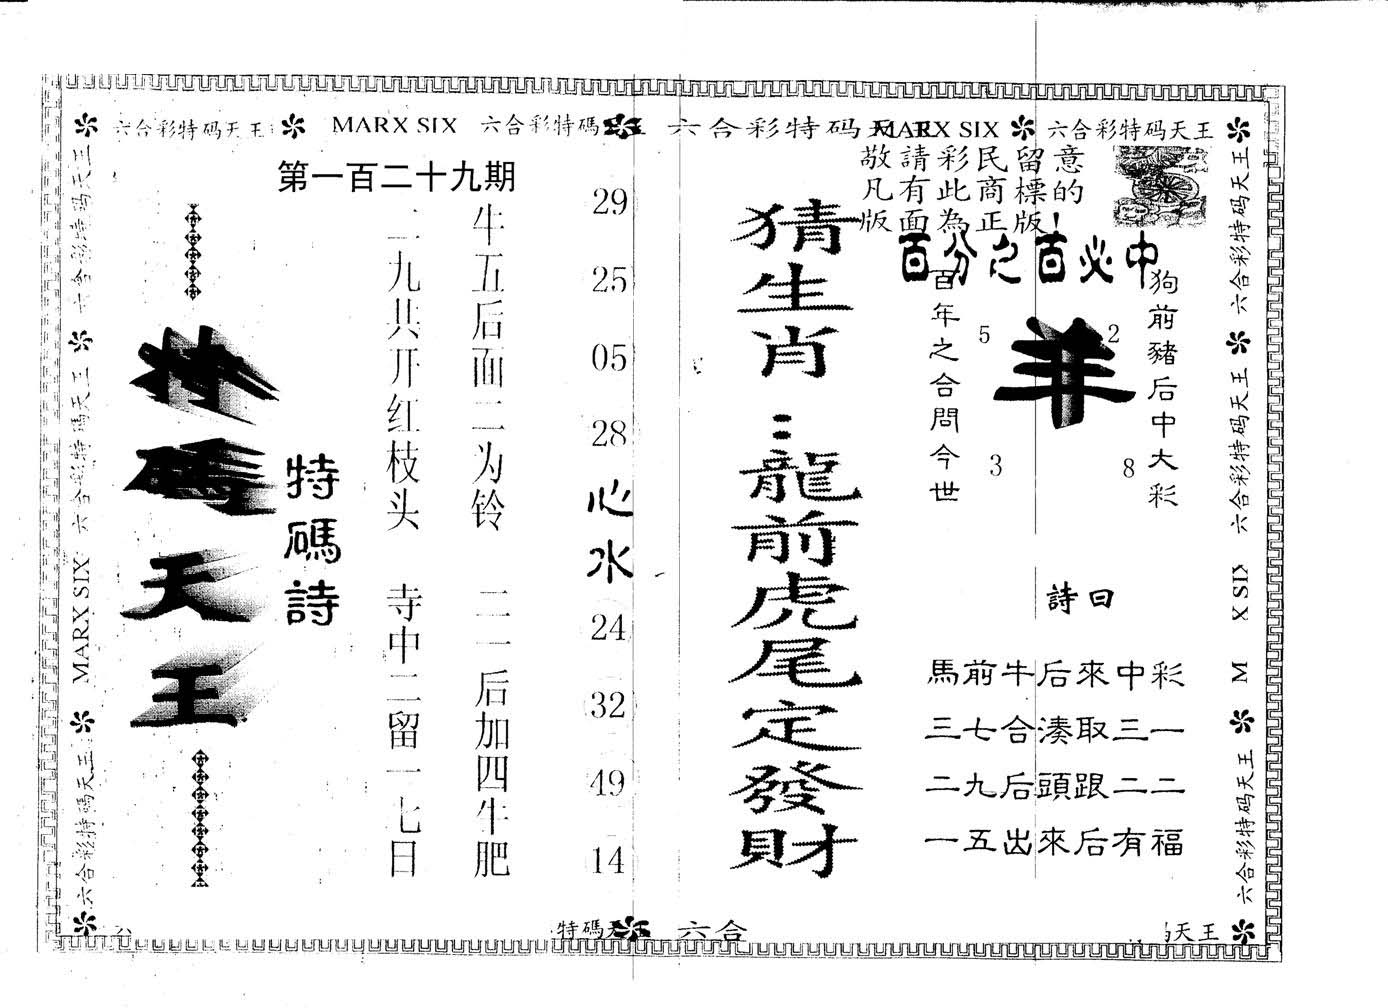 六合彩特码天王
MARX SIX
六合彩特碼
六合彩特码天王
MARX SIX
六合彩特码天王
第一百二十九期
敬請彩民留意
凡有此商標的
版面為正版!
百分之百必中
特碼天王
特碼詩
牛五后面二为铃
二一后加四牛肥
二九共开红枝头
寺中二留一七日
29
25
05
28
心水
24
32
49
14
猜生肖:龍前虎尾定發財
狗前豬后中大彩
百年之合問今世
羊
5
2
3
8
詩曰
馬前牛后來中彩
三七合湊取三一
二九后頭跟二二
一五出來后有福
六合彩特码天王
六合彩特碼天王
MARX SIX
六合彩特碼天王
六合彩特码天王
六合彩特码天王
X SIX
M
六合彩特码天王
特碼天
六合
天王